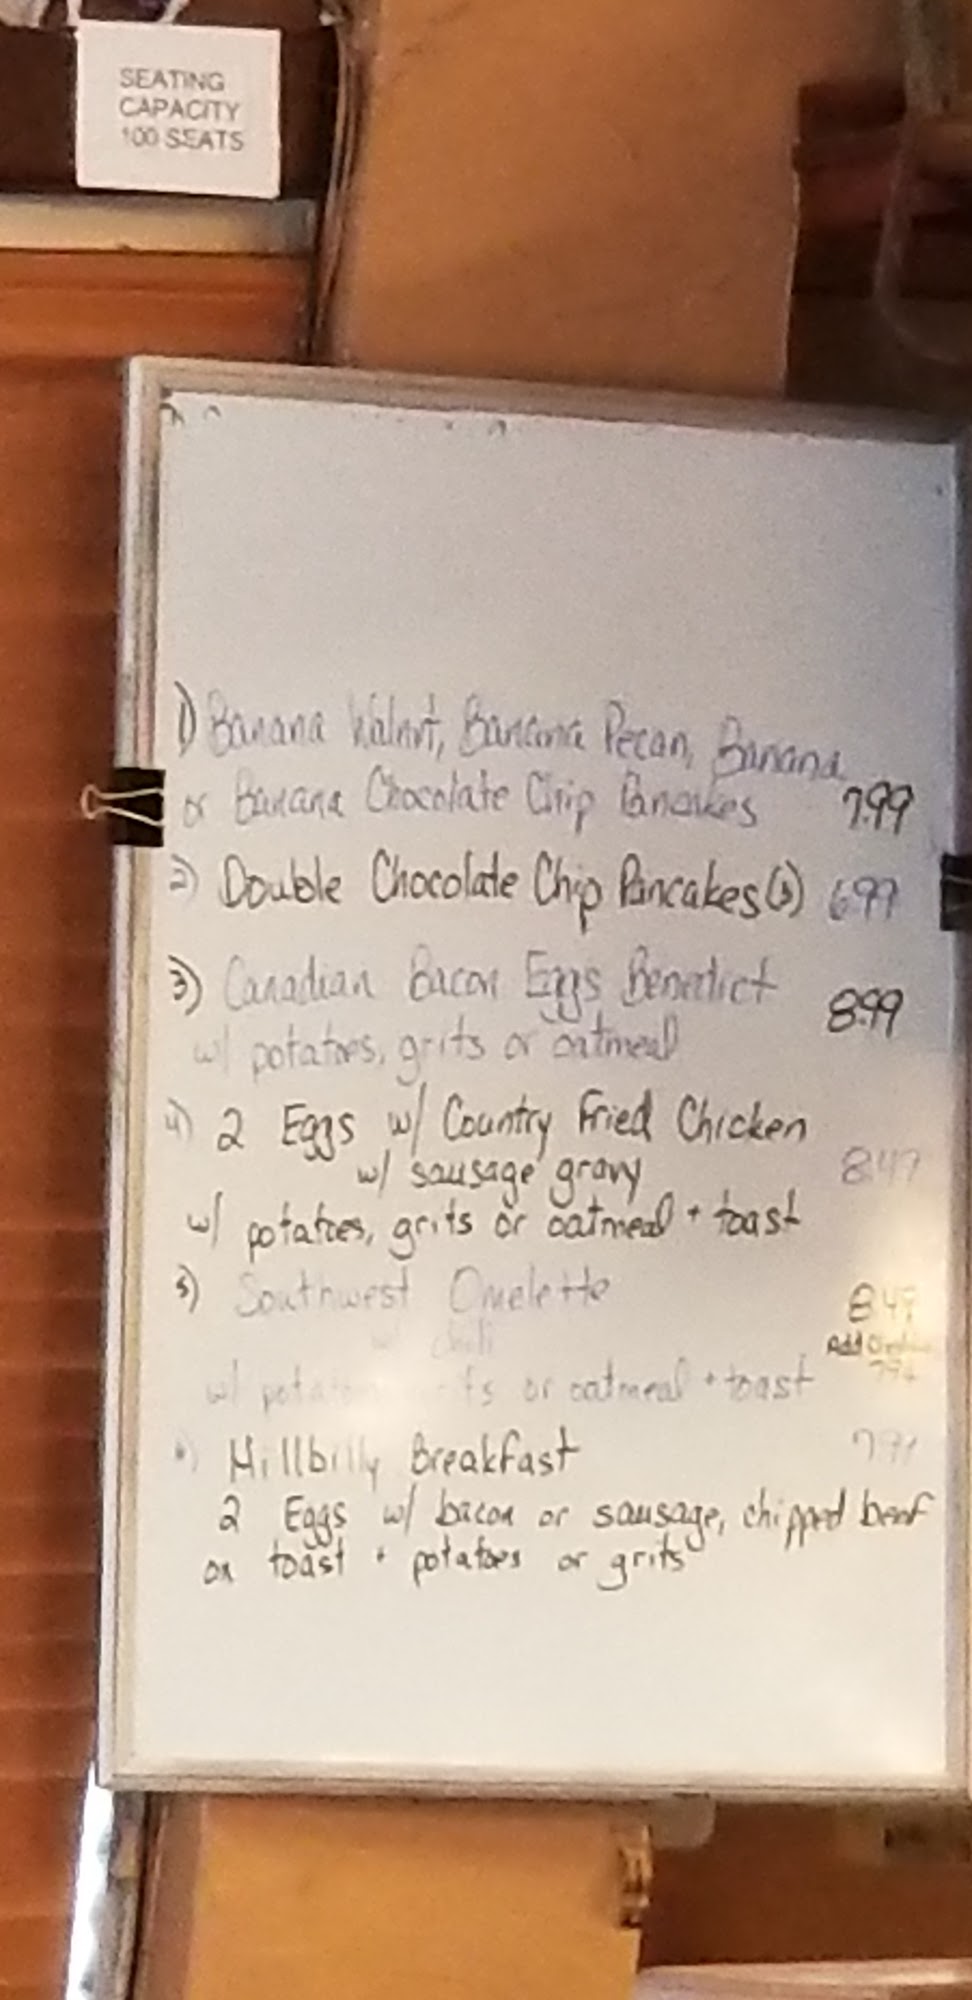 SEATING
CAPACITY
100 SEATS
1) Banana Walnut, Banana Pecan, Banana
or Banana Chocolate Chip Pancakes 7.99
2) Double Chocolate Chip Pancakes (3) 6.99
3) Canadian Bacon Eggs Benedict 8.99
w/ potatoes, grits or oatmeal
4) 2 Eggs w/ Country Fried Chicken
w/ sausage gravy 8.49
w/ potatoes, grits or oatmeal + toast
5) Southwest Omelette 8.49
chili Add
w/ or oatmeal + toast
Hillbilly Breakfast
2 Eggs w/ bacon or sausage, chipped beef
on toast + potatoes or grits